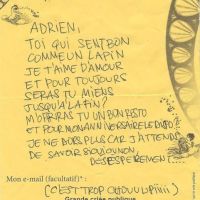 ADRIEN,
TOI QUI SENT BON
COMME UN LAPIN
JE T'AIME D'AMOUR
ET POUR TOUJOURS
SERAS TU MIENS
JUSQU'À LA FIN?
M'OFFRAS TU UN BON RESTO
ET POUR MON ANNIVERSAIRE LE
JE NE DORS PLUS CAR J'ATTENDS
DE SAVOIR SI OUI OU NON,
DESESPEREMENT.
Mon e-mail (facultatif)* :
(C'EST TROP CHOUUUPIIIII)
Grande criée publique